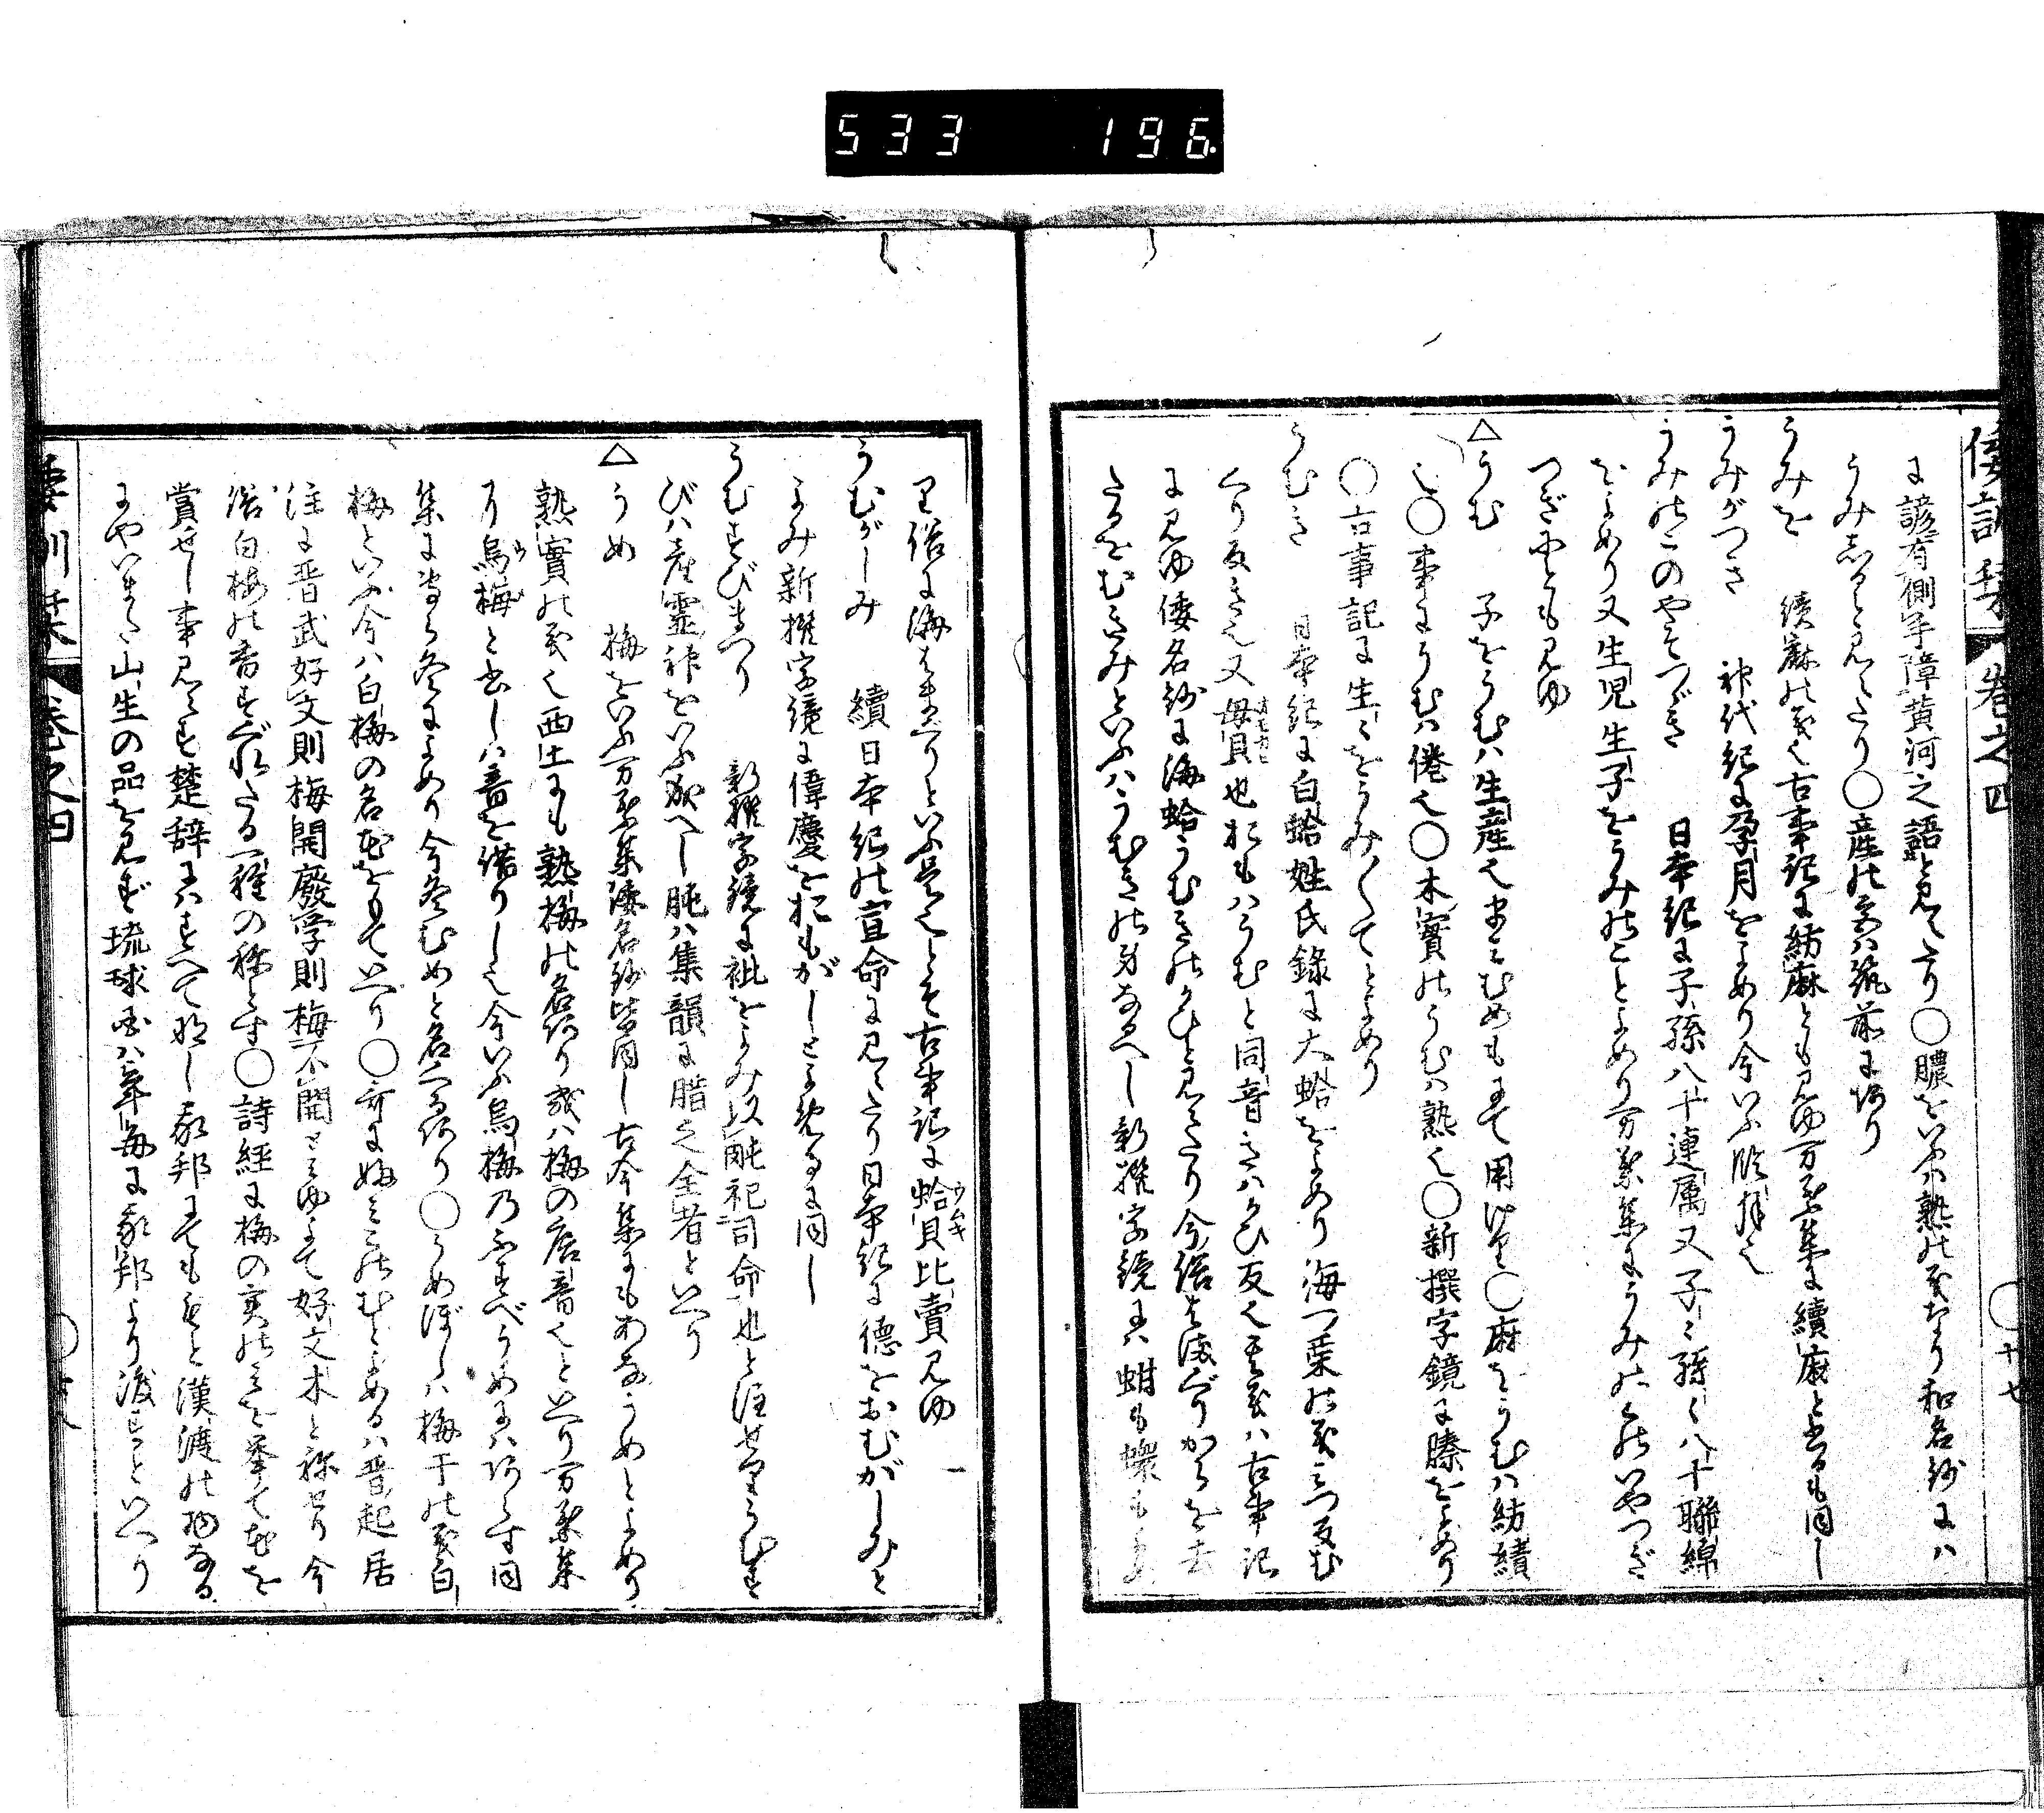 533 196
倭訓栞 巻之四 ○十七
に諺有側手障黄河之語と見えたり○膿をいふハ熟の義なり和名鈔にハ
うみしると見えたり○産の宮ハ筑前にあり
うみを 績麻の義也古事記に紡麻とも見ゆ万葉集に續麻と書るも同し
うみがつき 神代紀に孕月をよめり今いふ臨月也
うみのこのやそつゞき 日本紀に子孫八十連属又子々孫々八十聯綿
をよめり又生児生子をうみのことよめり万葉集にうみのこのいやつぎ
つぎにとも見ゆ
△うむ 子をうむハ生産也 用ゐ ○麻をうむハ紡績
也○事にうむハ倦也○木實のうむハ熟也○新撰字鏡に臻をよめり
○古事記に生々をうみ〱てとよめり
うむき 日本紀に白蛤姓氏錄に大蛤をよめり海つ葉の義みつ反む
くり反き也又母貝也おもハうむと同音きハかひ反也其義ハ古事記
に見ゆ倭名鈔に海蛤うむきのかひと見えたり今俗はまぐりからを去
たるをむきみといふハうむきの身なるへし新撰字鏡にハ蚶も 蠏もよめ
り俗に海はまぐりといふ是也とそ古事記に蛤貝比賣見ゆ
うむがしみ 續日本紀の宣命に見えたり日本紀に徳をおむがしみと
よみ新撰字鏡に偉慶をおもがしとよめるに同し
うむすびまつり 新撰字鏡に祉をよみ以豘祀司命也と注せり うむす
びハ産霊神をいふ成へし豘ハ集韻に腊之全者といへり
△うめ 梅をいふ万葉集倭名鈔皆同し古今集にもあなうめとよめり
熟實の義也西土にも熟梅の名あり或ハ梅の唐音也といへり万葉集
に烏梅と書しハ音を借りし也今いふ烏梅乃ふすべうめにハあらす同
集に 冬によめり今冬むめと名くるあり○うめぼしハ梅干の義白
梅といふ今ハ白梅の名花をもていへり○ ハ晋起居
注に晋武好文則梅開廢学則梅不開と見ゆよて好文木と稱せり今
俗白梅の香すぐれたる一種の称とす○詩経に梅の実のみを挙て花を
賞せし事見えす楚辞にハすへてなし我邦にてももと漢渡の物なる
にやいまた山生の品を見ず琉球国ハ年毎に我邦より渡すといへり
倭訓栞 巻之四